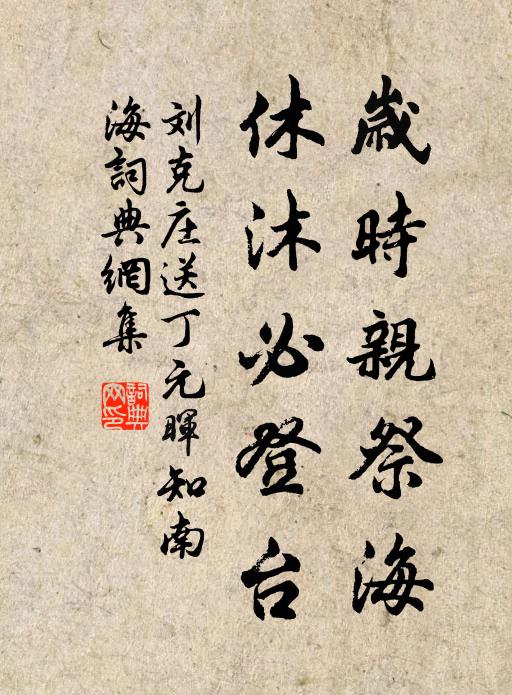 歲時親祭海
休沐必登台
刘克庄送丁元暉知南
海詞典網集
詞典
网印